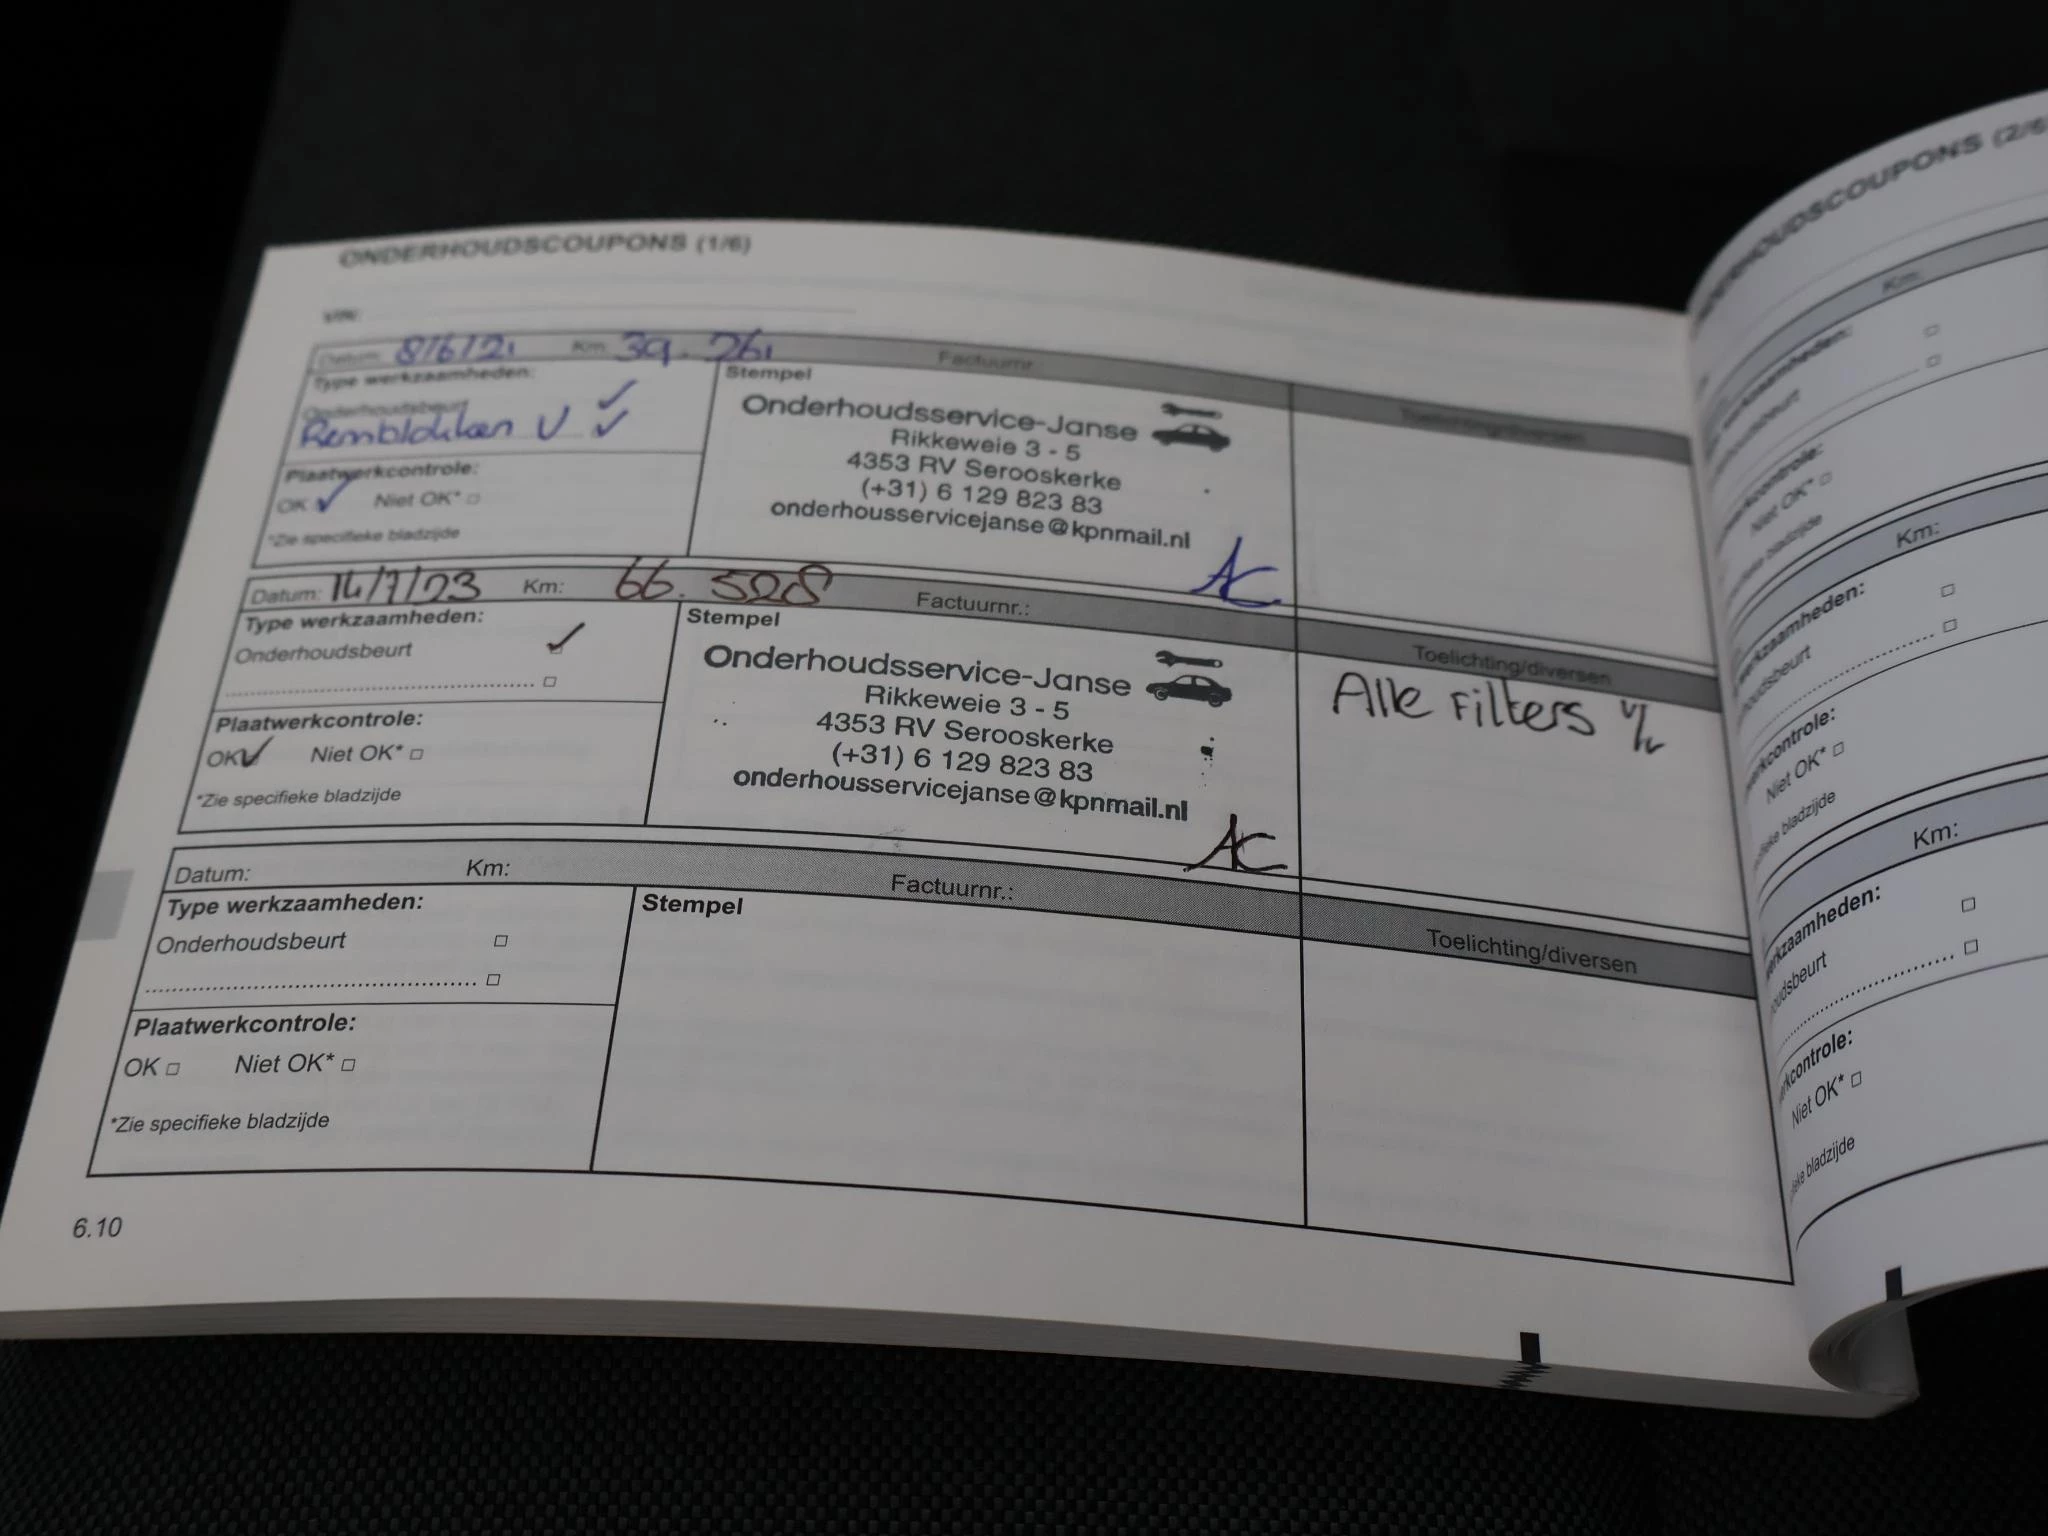 ONDERHOUDSCOUPONS (1/6)
VIN:
Datum: 8/6/21 Km: 39.261 Factuurnr.:
Type werkzaamheden:
Onderhoudsbeurt
Remblokken V
Plaatwerkcontrole:
OK Niet OK*
*Zie specifieke bladzijde
Stempel
Onderhoudsservice-Janse
Rikkeweie 3 - 5
4353 RV Serooskerke
(+31) 6 129 823 83
onderhousservicejanse@kpnmail.nl
AC
Toelichting/diversen
Datum: 14/7/23 Km: 66.528 Factuurnr.:
Type werkzaamheden:
Onderhoudsbeurt
Plaatwerkcontrole:
OK Niet OK*
*Zie specifieke bladzijde
Stempel
Onderhoudsservice-Janse
Rikkeweie 3 - 5
4353 RV Serooskerke
(+31) 6 129 823 83
onderhousservicejanse@kpnmail.nl
AC
Toelichting/diversen
Alle Filters
Datum: Km: Factuurnr.:
Type werkzaamheden:
Onderhoudsbeurt
Plaatwerkcontrole:
OK Niet OK*
*Zie specifieke bladzijde
Stempel
Toelichting/diversen
6.10
ONDERHOUDSCOUPONS (2/6)
Km:
Niet OK*
bladzijde
Km:
Niet OK*
bladzijde
Km:
Niet OK*
bladzijde